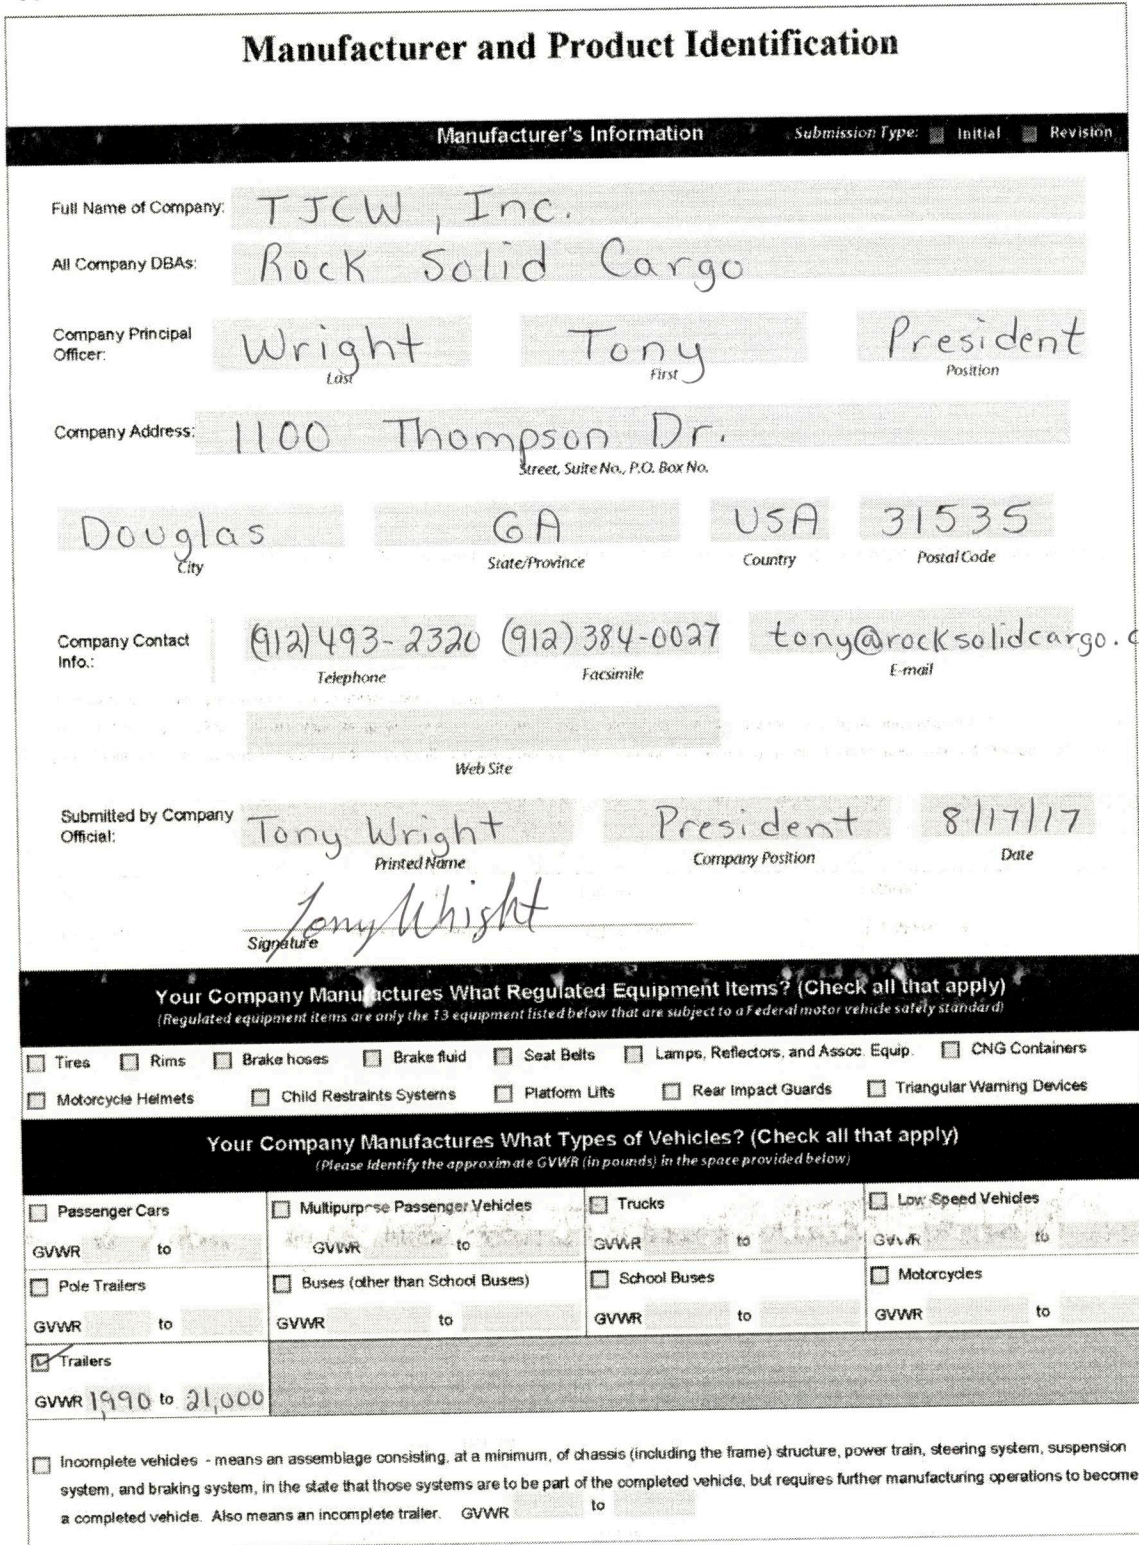 Manufacturer and Product Identification
Manufacturer's Information Submission Type: Initial Revision
Full Name of Company: TJCW, Inc.
All Company DBAs: Rock Solid Cargo
Company Principal Officer: Wright Tony President
Last First Position
Company Address: 1100 Thompson Dr.
Street, Suite No., P.O. Box No.
Douglas GA USA 31535
City State/Province Country Postal Code
Company Contact Info.: (912) 493-2320 (912) 384-0027 tony@rocksolidcargo.c
Telephone Facsimile E-mail
Web Site
Submitted by Company Official: Tony Wright President 8/17/17
Printed Name Company Position Date
Tony Wright
Signature
Your Company Manufactures What Regulated Equipment Items? (Check all that apply)
(Regulated equipment items are only the 13 equipment listed below that are subject to a Federal motor vehicle safety standard)
Tires Rims Brake hoses Brake fluid Seat Belts Lamps, Reflectors, and Assoc. Equip. CNG Containers
Motorcycle Helmets Child Restraints Systems Platform Lifts Rear Impact Guards Triangular Warning Devices
Your Company Manufactures What Types of Vehicles? (Check all that apply)
(Please Identify the approximate GVWR (in pounds) in the space provided below)
Passenger Cars Multipurpose Passenger Vehicles Trucks Low Speed Vehicles
GVWR to GVWR to GVWR to GVWR to
Pole Trailers Buses (other than School Buses) School Buses Motorcycles
GVWR to GVWR to GVWR to GVWR to
Trailers
GVWR 1,990 to 21,000
Incomplete vehicles - means an assemblage consisting, at a minimum, of chassis (including the frame) structure, power train, steering system, suspension
system, and braking system, in the state that those systems are to be part of the completed vehicle, but requires further manufacturing operations to become
a completed vehicle. Also means an incomplete trailer. GVWR to